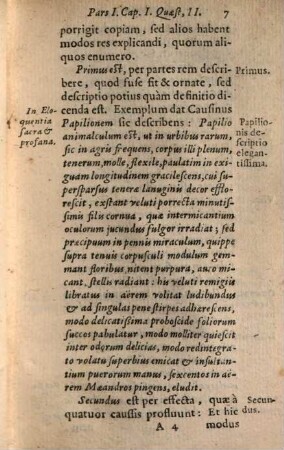 Pars I. Cap. I. Quæst. II. 7
porrigit copiam, sed alios habent
modos res explicandi, quorum ali-
quos enumero.
Primus est, per partes rem descri-
bere, quod fuse fit & ornate, sed
descriptio potius quàm definitio di-
cenda est. Exemplum dat Caussinus
Papilionem sic describens: Papilio
animalculum est, ut in urbibus rarum,
sic in agris frequens, corpus illi plenum,
tenerum, molle, flexile, paulatim in exi-
guam longitudinem gracilescens, cui su-
perspersus tenera lanuginis decor efflo-
rescit, exstant veluti porrecta minutis-
simis filis cornua, quæ intermicantium
oculorum jucundus fulgor irradiat; sed
præcipuum in pennis miraculum, quippe
supra tenuis corpusculi modulum gem-
mant floribus, nitent purpura, auro mi-
cant, stellis radiant: his veluti remigiis
libratus in aërem volitat ludibundus
& ad singulas pene stirpes adhærescens,
modo delicatissima proboscide foliorum
succos pabulatur, modo molliter quiescit
inter odorum delicias, modo redintegra-
to volatu superbius emicat & insultan-
tium puerorum manus, sexcentos in aë-
rem Mæandros pingens, eludit.
Secundus est per effecta, quæ à
quatuor caussis profluunt: Et hic
A 4 modus
In Elo-
quentia
sacra &
profana.
Primus.
Papilio-
nis de-
scriptio
elegan-
tissima.
Secun-
dus.